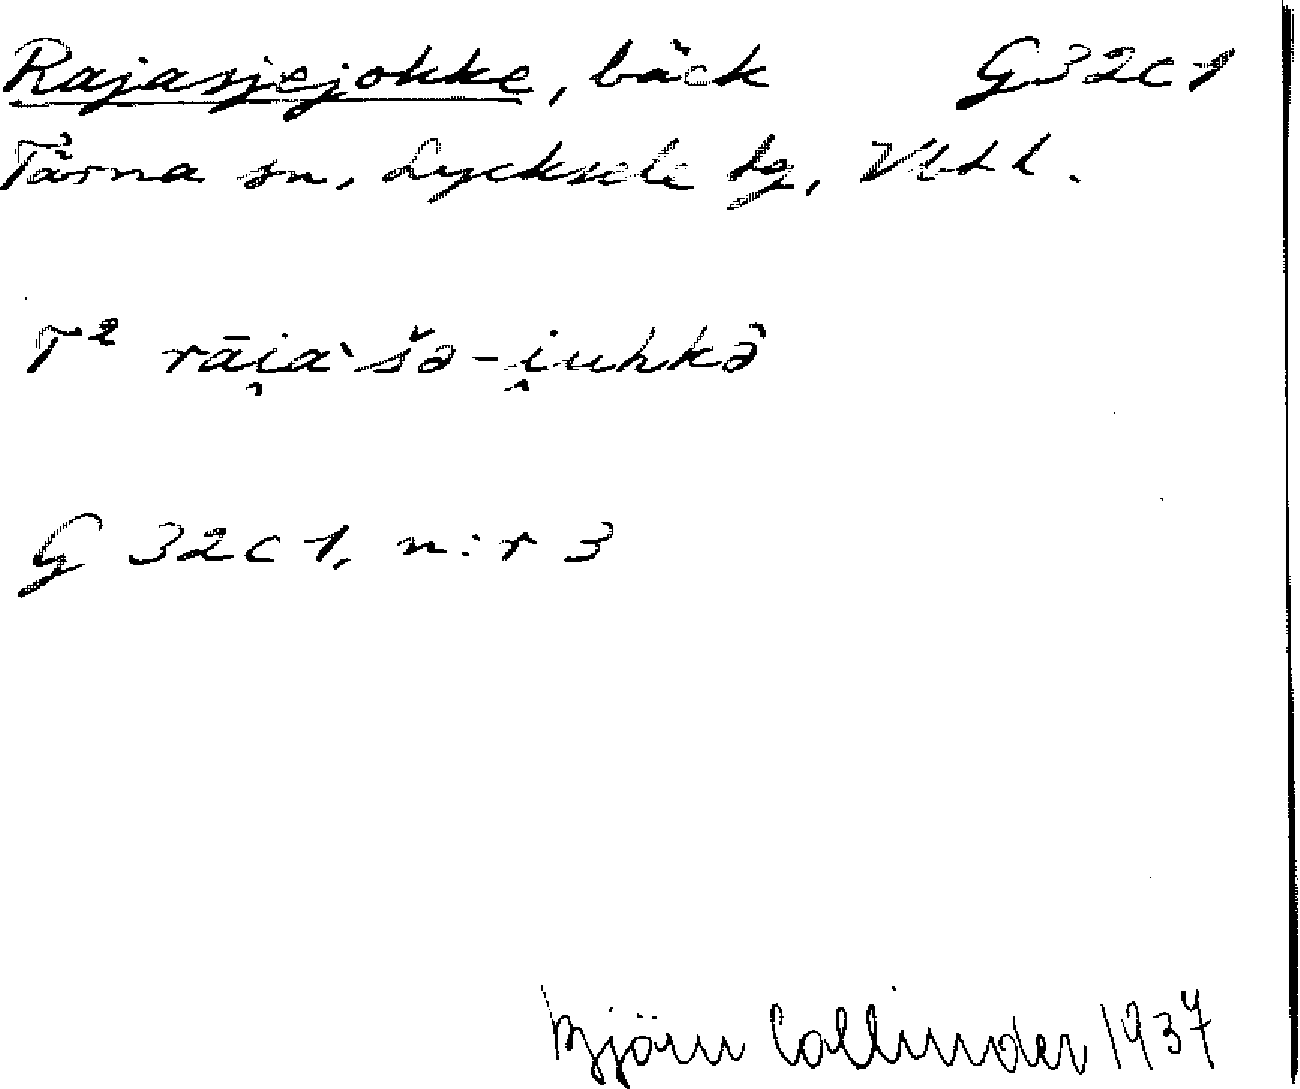 Rajasjejokke, bäck G32c1
Tärna sn, Lycksele lg, Vbtl.
T² rāi̯aˋšə-i̯uhkə̂
G 32c 1, n:r 3
Björn Collinder 1937